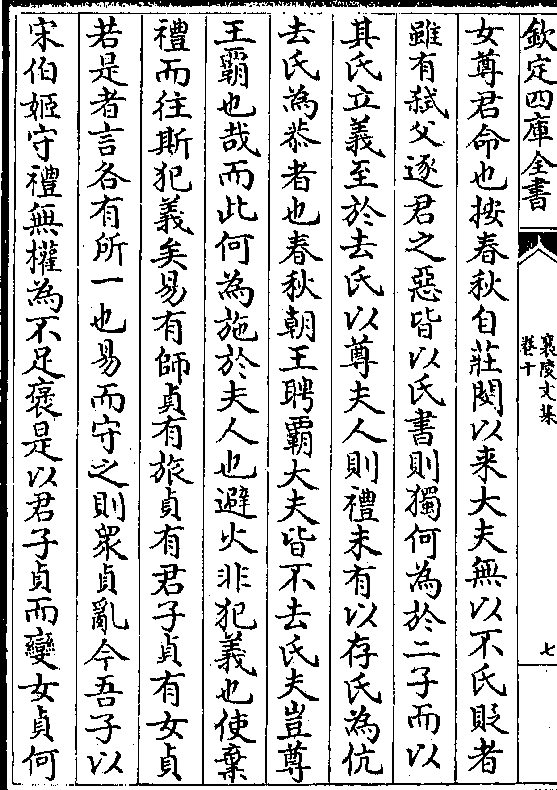 欽定四庫全書
襄陵文集
卷十
七
女尊君命也按春秋自莊閔以来大夫無以不氏貶者
雖有弑父逐君之惡皆以氏書則獨何為於二子而以
其氏立義至於去氏以尊夫人則禮未有以存氏為伉
去氏為恭者也春秋朝王聘霸大夫皆不去氏夫豈尊
王霸也哉而此何為施於夫人也避火非犯義也使棄
禮而往斯犯義矣易有師貞有旅貞有君子貞有女貞
若是者言各有所一也易而守之則衆貞亂今吾子以
宋伯姬守禮無權為不足褒是以君子貞而變女貞何